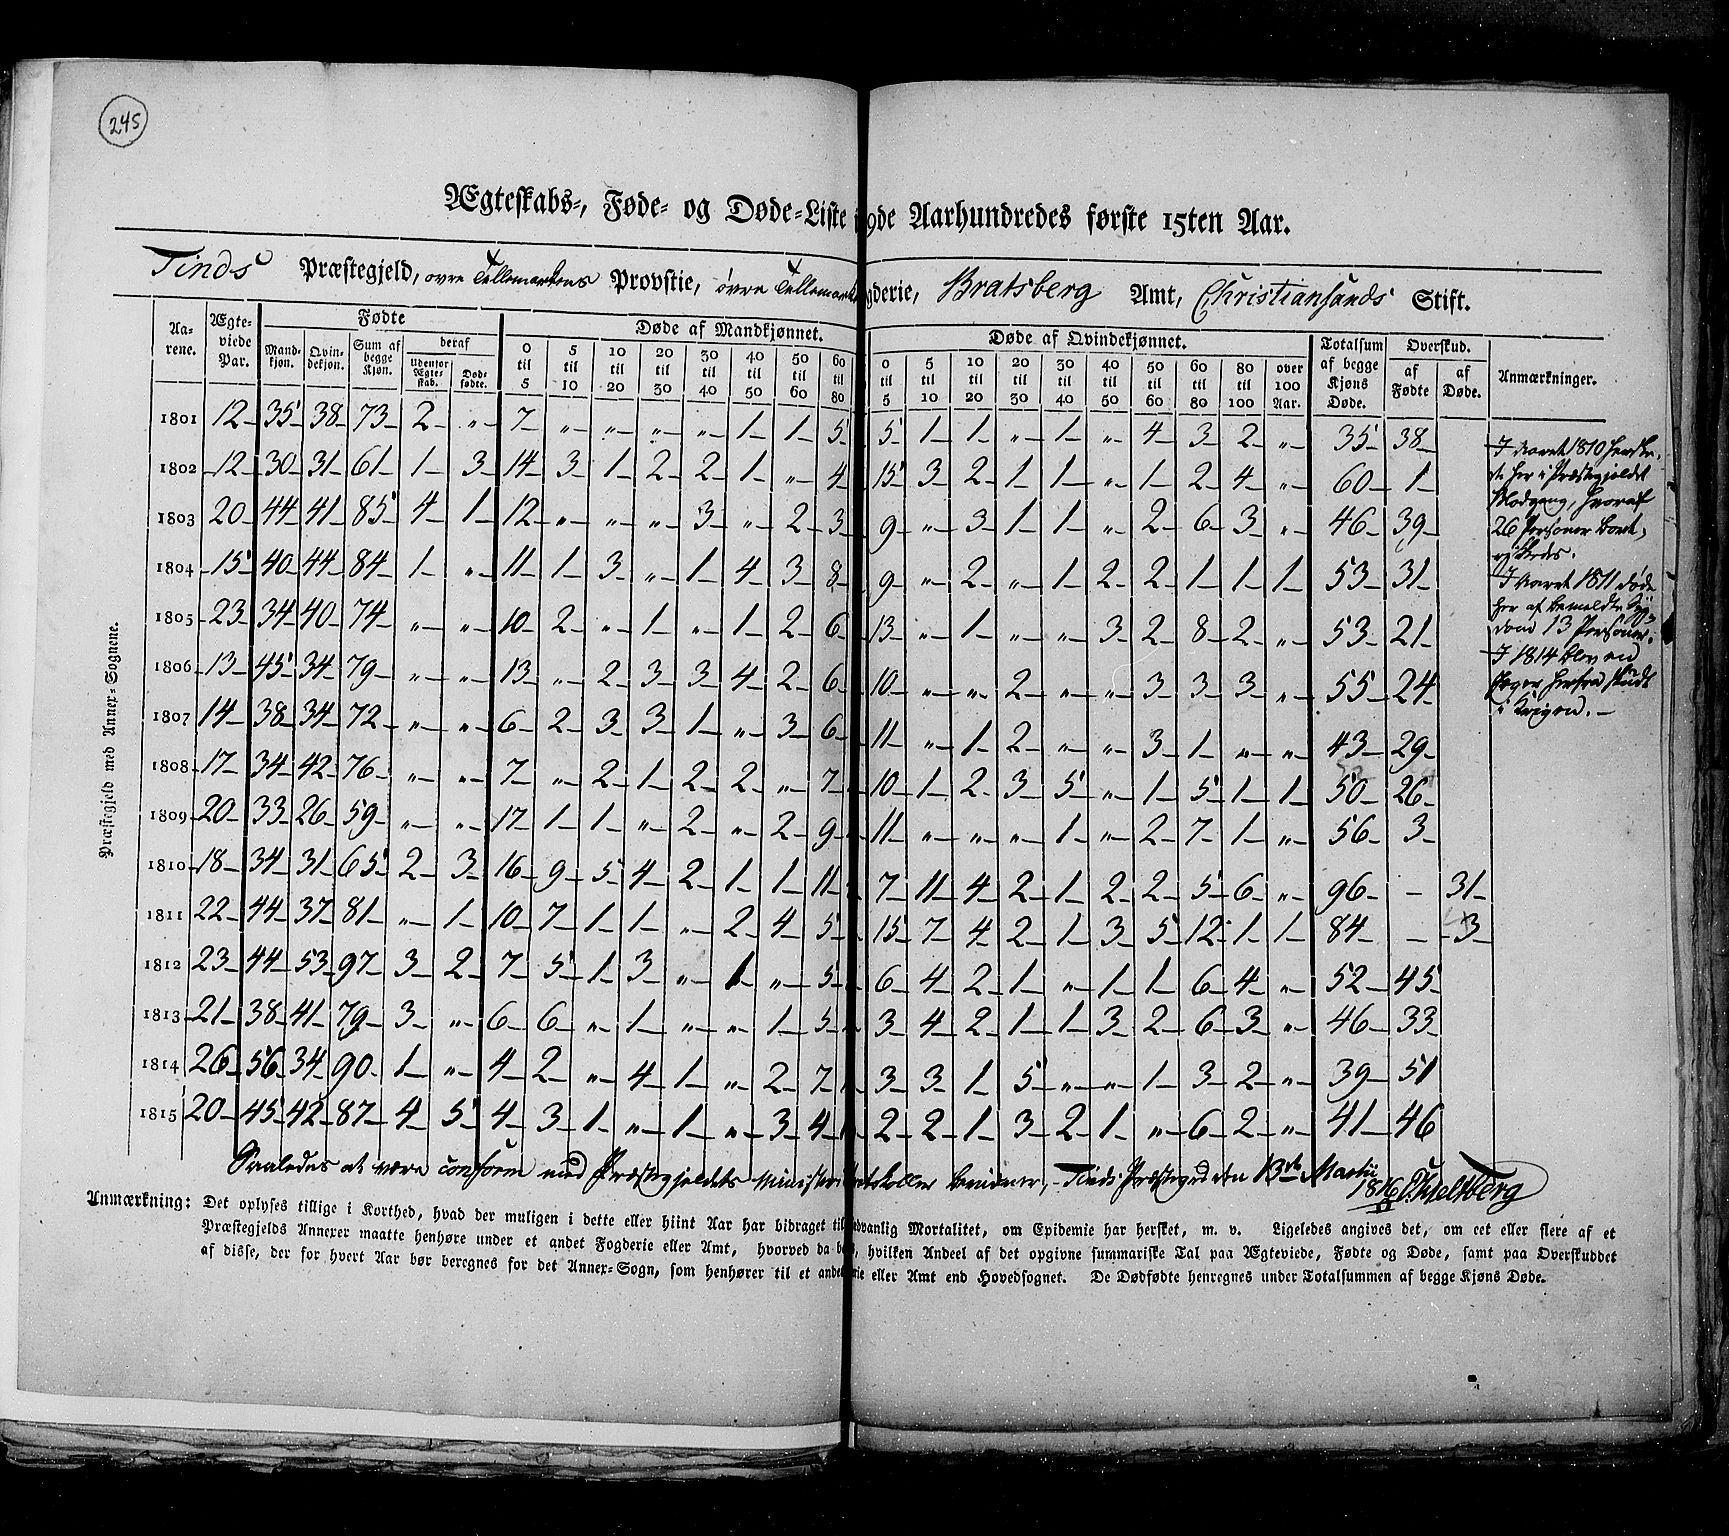 245
Ægteskabs-, Føde- og Døde-Liste 19de Aarhundredes første 15ten Aar.
Tinds Præstegjeld, øvre Tellemarkens Provstie, øvre Tellemark gderie, Bratsberg Amt, Christiansands Stift.
Aarene. Ægteviede Par. Fødte Døde af Mandkjønnet. Døde af Qvindekjønnet. Totalsum af begge Kjøns Døde. Overskud. Anmærkninger.
Mandkjøn. Qvindekjøn. Sum af begge Kjøn. deraf udenfor Ægteskab. Dødfødte. 0 til 5 5 til 10 10 til 20 20 til 30 30 til 40 40 til 50 50 til 60 60 til 80 0 til 5 5 til 10 10 til 20 20 til 30 30 til 40 40 til 50 50 til 60 60 til 80 80 til 100 over 100 Aar. af Fødte af Døde.
Præstegjeld med Annex-Sognene.
1801 12 35 38 73 2 " 7 " " " " 1 1 5 5 1 1 " 1 " 4 3 2 " 35 38
1802 12 30 31 61 1 3 14 3 1 2 2 1 " 4 15 3 2 1 1 " 1 2 4 " 60 1
1803 20 44 41 85 4 1 12 " " " 3 " 2 3 9 " 3 1 1 " 2 6 3 " 46 39
1804 15 40 44 84 1 " 11 1 3 " 1 4 3 8 9 " 2 " 1 2 2 1 1 1 53 31
1805 23 34 40 74 " " 10 2 " 1 " 1 2 6 13 " 1 " " 3 2 8 2 " 53 21
1806 13 45 34 79 " " 13 " 2 3 3 4 2 6 10 " " 2 " " 3 3 3 " 55 24
1807 14 38 34 72 " " 6 2 3 3 1 " 3 6 11 " 1 2 " " 3 1 " " 43 29
1808 17 34 42 76 " " 7 " 2 1 2 2 " 7 10 1 2 3 5 " 1 5 1 1 50 26
1809 20 33 26 59 " " 17 1 1 " 2 " 2 9 11 " " " 1 " 2 7 1 " 56 3
1810 18 34 31 65 2 3 16 9 5 4 2 1 1 11 7 11 4 2 1 2 2 5 6 " 96 - 31
1811 22 44 37 81 " 1 10 7 1 1 " 2 4 5 15 7 4 2 1 3 5 12 1 1 84 - 3
1812 23 44 53 97 3 2 7 5 1 3 " 1 " 5 6 4 2 1 " 1 1 6 4 " 52 45
1813 21 38 41 79 3 " 6 6 " 1 " " 1 5 3 4 2 1 1 3 2 6 3 " 46 33
1814 26 56 34 90 1 " 4 2 " 4 1 " 2 7 3 3 1 5 " " 1 3 2 " 39 51
1815 20 45 42 87 4 5 4 3 1 " 1 " 3 4 2 2 1 3 2 1 " 6 2 " 41 46
I Aaret 1810
her i Præstegjeldet
Blodgang, hvoraf
26 Personer bort
rykkedes.
I Aaret 1811 døde
her af bemeldte Syg
dom 13 Personer.
I 1814 blev en
herfra skudt
i Krigen.
Saaledes at være conform med Præstegjeldets bevidner, Tinds Præstegaard den 13de Martii
1816
Anmærkning: Det oplyses tillige i Korthed, hvad der muligen i dette eller hiint Aar har bidraget til dvanlig Mortalitet, om Epidemie har hersket, m. v. Ligeledes angives det, om eet eller flere af et
Præstegjelds Annexer maatte henhøre under et andet Fogderie eller Amt, hvorved da be , hvilken Andeel af det opgivne summariske Tal paa Ægteviede, Fødte og Døde, samt paa Overskuddet
af disse, der for hvert Aar bør beregnes for det Annex-Sogn, som henhører til et andet rie eller Amt end Hovedsognet. De Dødfødte henregnes under Totalsummen af begge Kjøns Døde.